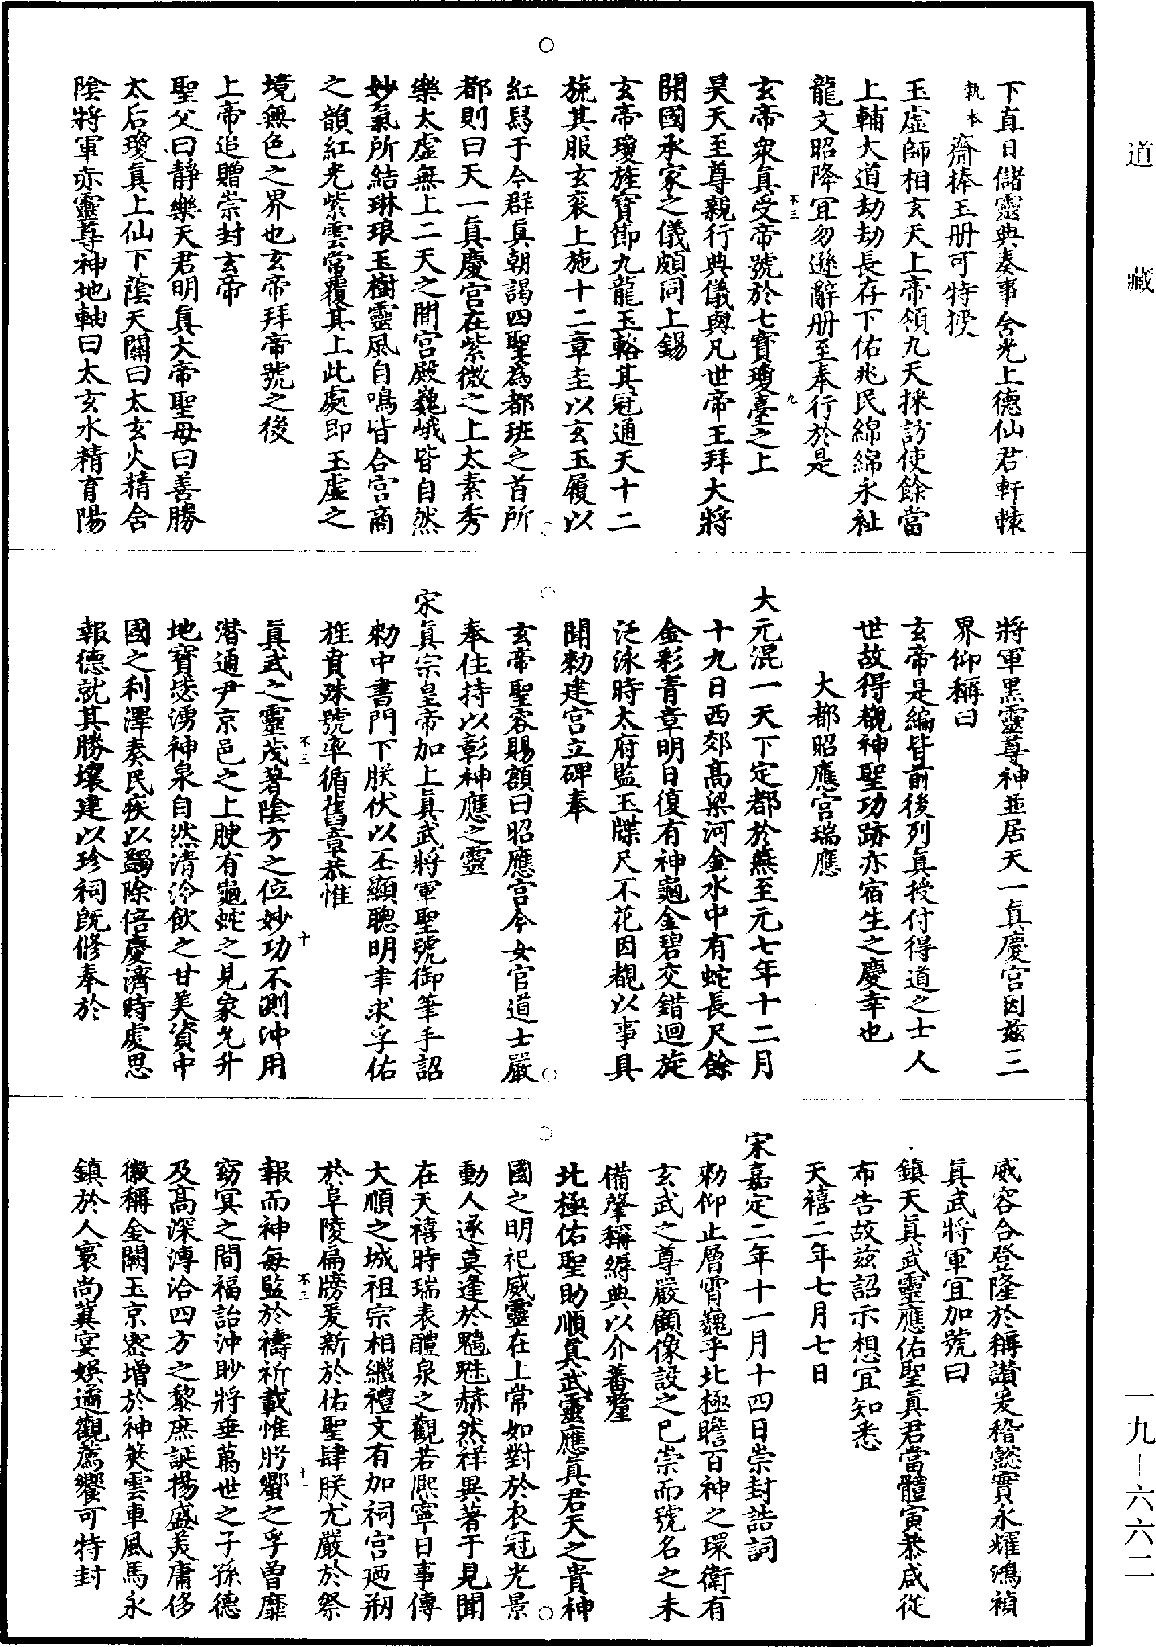 道藏
下直日儲靈典奏事含光上德仙君軒轅
執本齋捧玉册可特授
玉虛師相玄天上帝領九天採訪使餘當
上輔大道劫劫長存下佑兆民綿綿永祉
龍文昭降宜勿遜辭册至奉行於是
不三 九
玄帝衆真受帝號於七寶瓊臺之上
昊天至尊親行典儀與凡世帝王拜大將
開國承家之儀頗同上錫
玄帝瓊旌寶節九龍玉輅其冠通天十二
旒其服玄衮上施十二章圭以玄玉履以
紅舄于今群真朝謁四聖爲都班之首所
都則曰天一真慶宫在紫微之上太素秀
樂太虛無上二天之間宫殿巍峨皆自然
妙氣所結琳琅玉樹靈風自鳴皆合宫商
之韻紅光紫雲常覆其上此處即玉虛之
境無色之界也玄帝拜帝號之後
上帝追贈崇封玄帝
聖父曰靜樂天君明真大帝聖母曰善勝
太后瓊真上仙下蔭天關曰太玄火精含
陰將軍赤靈尊神地軸曰太玄水精育陽
將軍黑靈尊神並居天一真慶宫因茲三
界仰稱曰
玄帝是編皆前後列真授付得道之士人
世故得覩神聖功跡亦宿生之慶幸也
大都昭應宫瑞應
大元混一天下定都於燕至元七年十二月
十九日西郊高梁河金水中有蛇長尺餘
金彩青章明日復有神龜金碧交錯迴旋
泛泳時太府監玉牒尺不花因覩以事具
聞勑建宫立碑奉
玄帝聖容賜額曰昭應宫今女官道士嚴
奉住持以彰神應之靈
宋真宗皇帝加上真武將軍聖號御筆手詔
勑中書門下朕伏以丕顯聰明聿求孚佑
徃賁殊號率循舊章恭惟
不三 十
真武之靈茂著陰方之位妙功不測沖用
潜通尹京邑之上腴有龜蛇之見象允升
地寶惎湧神泉自然清泠飲之甘美資中
國之利澤奏民疾以蠲除倍慶濟時處思
報德就其勝壤建以珍祠既修奉於
威容合登隆於稱讃爰稽懿實永耀鴻禎
真武將軍宜加號曰
鎮天真武靈應佑聖真君當體寅恭咸從
布告故茲詔示想宜知悉
天禧二年七月七日
宋嘉定二年十一月十四日崇封誥詞
勑仰止層霄巍乎北極瞻百神之環衛有
玄武之尊嚴顧像設之已崇而號名之未
備肇稱縟典以介蕃釐
北極佑聖助順真武靈應真君天之貴神
國之明祀威靈在上常如對於衣冠光景
動人逐莫逢於魑魅赫然祥異著于見聞
在天禧時瑞表醴泉之觀若熈寧日事傳
大順之城祖宗相繼禮文有加祠宫迺刱
於阜陵扁牓爰新於佑聖肆朕尤嚴於祭
不三 十一
報而神每監於禱祈載惟肹蠁之孚曾靡
窈冥之間福詒沖眇將垂萬世之子孫德
及高深溥洽四方之黎庶誕揚盛美庸侈
徽稱金闕玉京寮增於神筴雲車風馬永
鎮於人寰尚冀宴娛遹觀薦饗可特封
一九－六六二